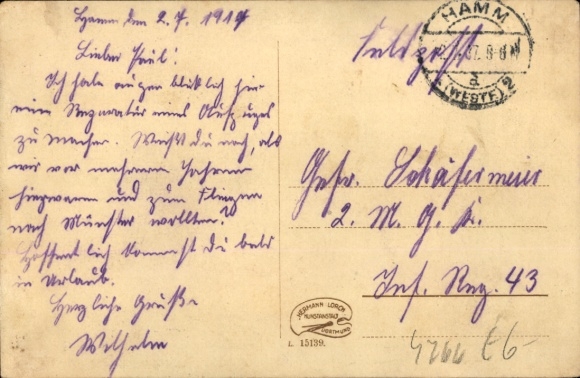 Hamm den 2. 7. 1917
Lieber Paul!
Ich habe augenblicklich hier
eine Reparatur eines Aufzuges
zu machen. Weißt Du noch, als
wir vor mehreren Jahren
hier waren und zum
nach Münster wollten?
Hoffentlich kommst Du bald
in Urlaub.
Herzliche Grüße
Wilhelm
Feldpost
HAMM
(WESTF.) 2
a
Gefr. Schäfermeier
2. M. G. K.
Inf. Reg. 43
HERMANN LORCH
KUNSTANSTALT
DORTMUND
L. 15139.